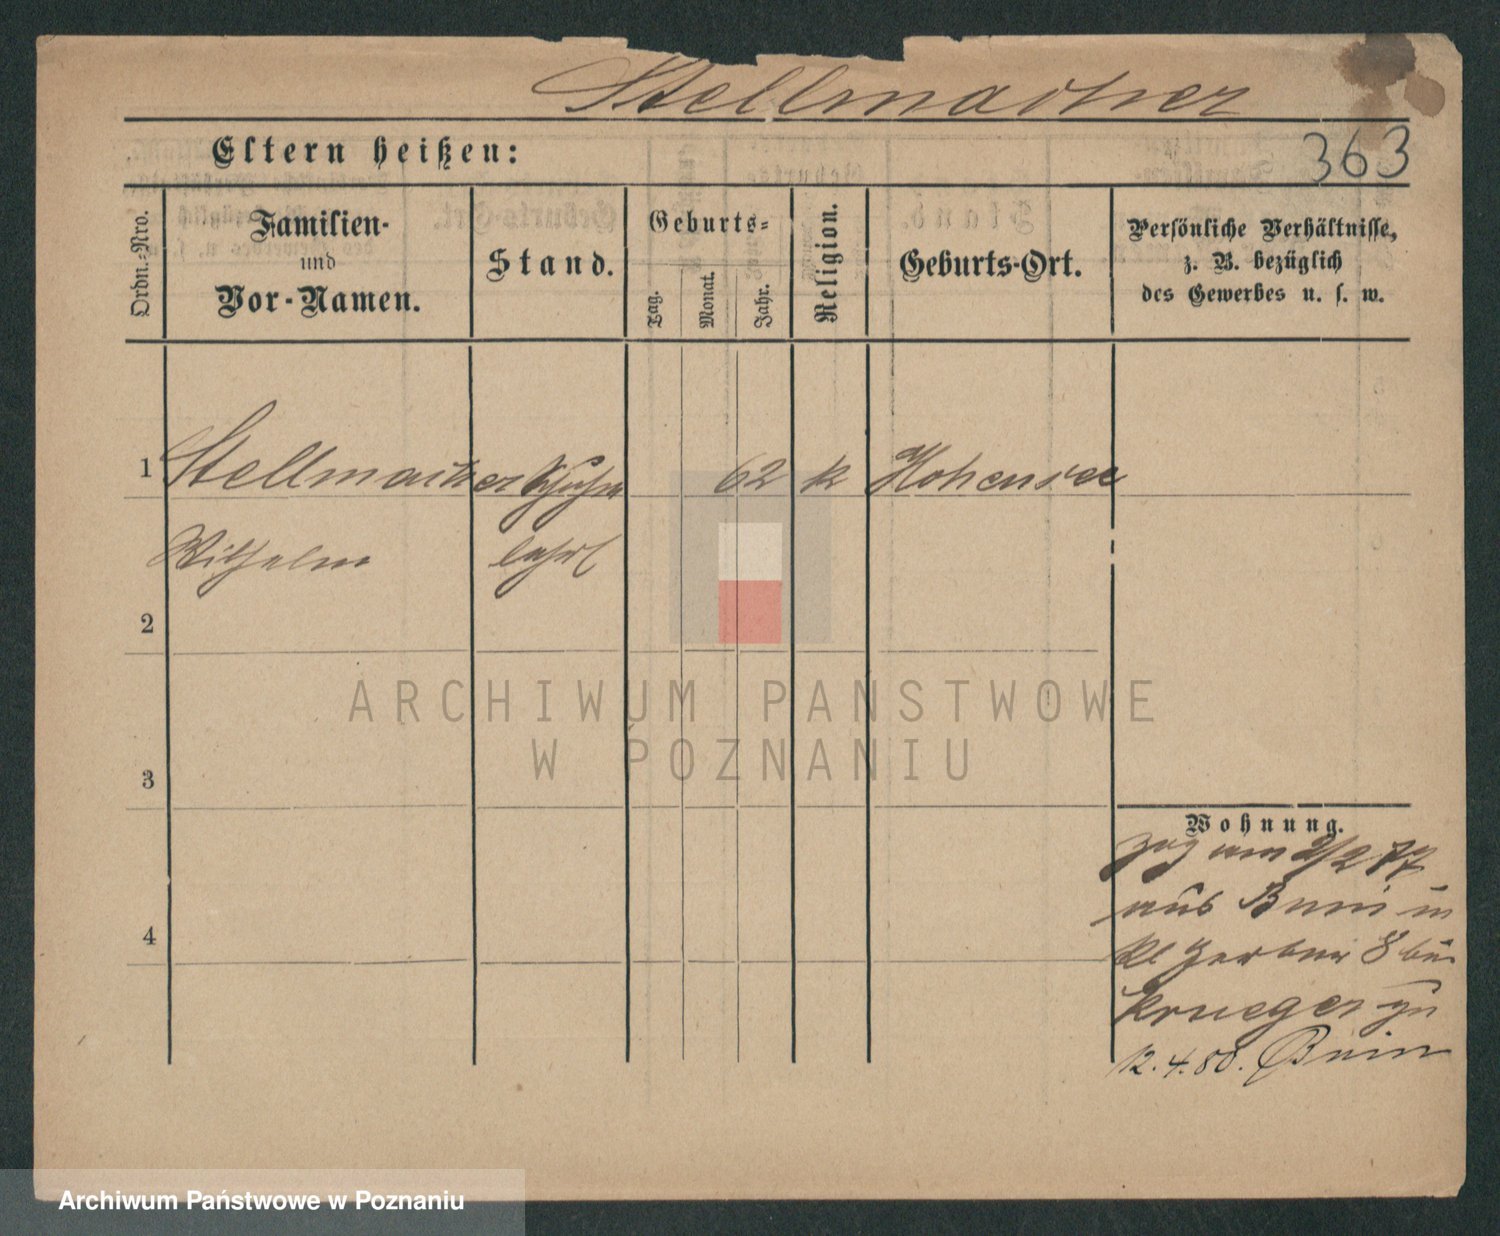 Stellmacher
Eltern heißen:
363
Ordn.-Nro.
Familien-
und
Vor-Namen.
Stand.
Geburts-
Tag.
Monat.
Jahr.
Religion.
Geburts-Ort.
Persönliche Verhältnisse,
z. B. bezüglich
des Gewerbes u. s. w.
1 Stellmacher Schuhm 62 k Hohensee
Wilhelm lehrl
2
ARCHIWUM PAŃSTWOWE
W POZNANIU
3
Wohnung.
zog am 2/2 77
aus Bnin in
Kl Gerber 8 bei
Krueger zu
4
12. 4. 80. Bnin
Archiwum Państwowe w Poznaniu